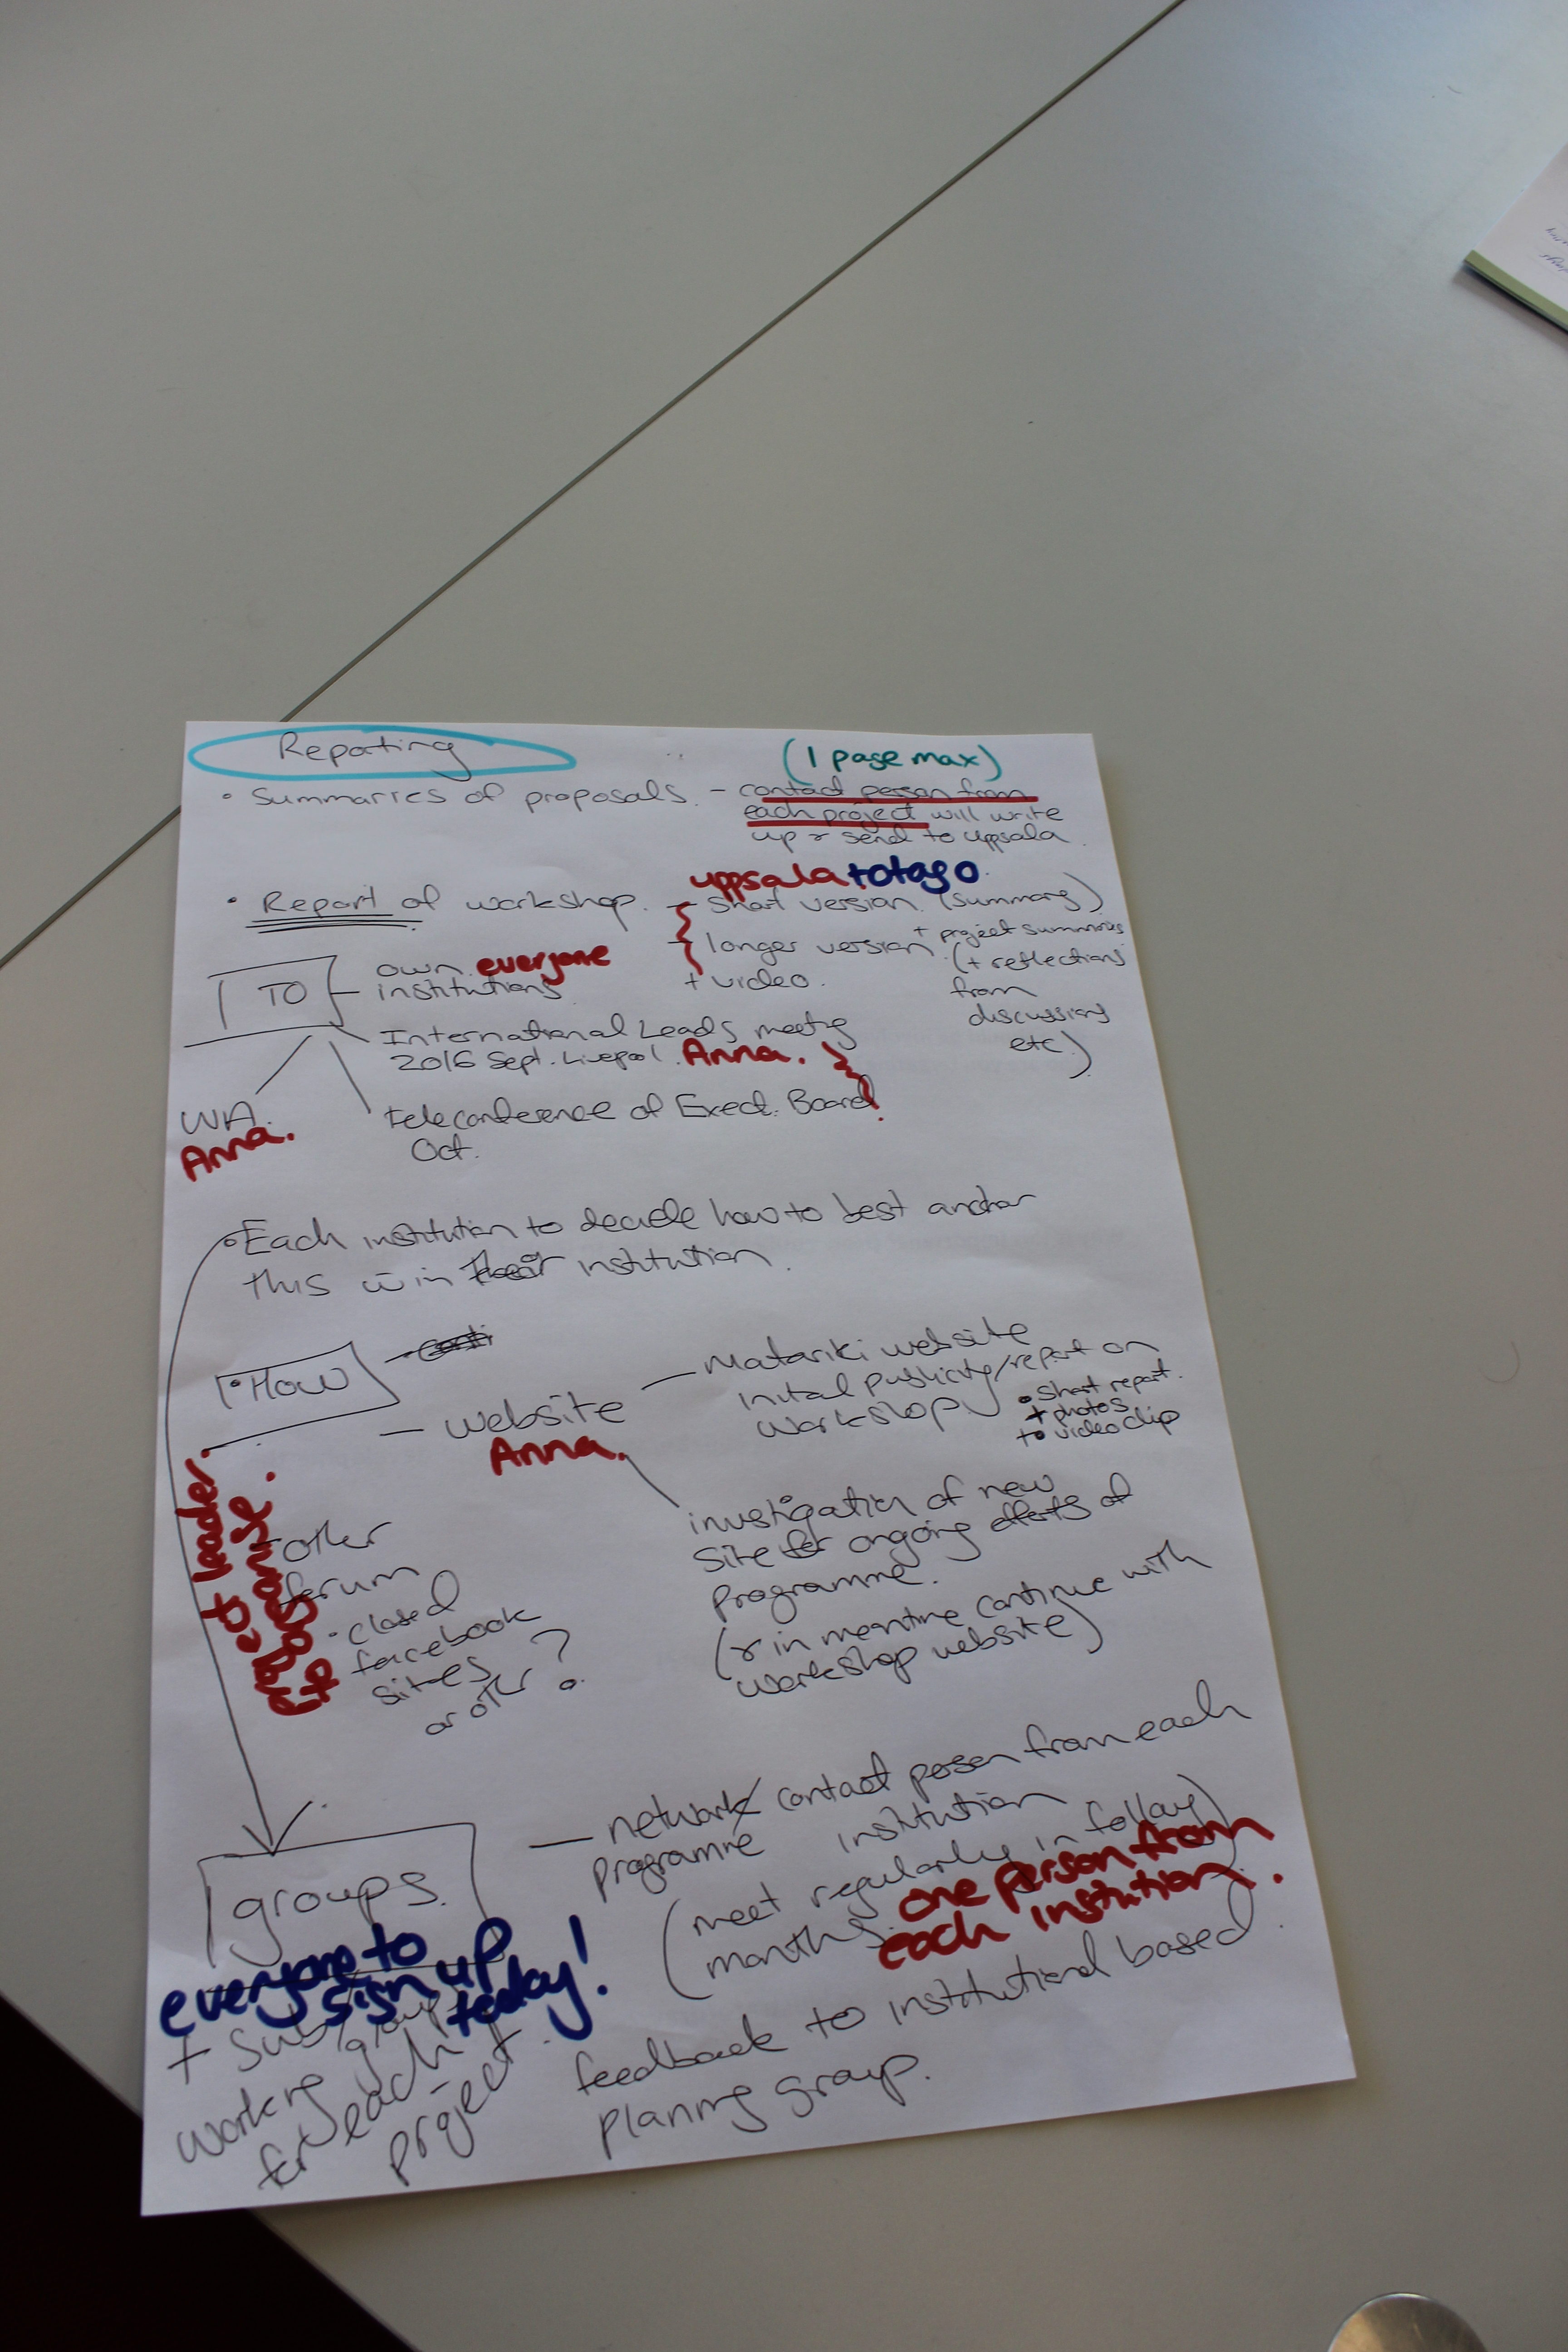 Reporting
(1 page max)
• Summaries of proposals. - contact person from
each project will write
up & send to Uppsala
uppsala + otago
• Report of workshop. - short version (summary)
- longer version + project summaries
(+ reflections
from
discussions
etc)
+ video.
TO
own everyone
institutions
International Leads meeting
2016 Sept. Liverpool. Anna.
WA.
Anna.
teleconference of Exect. Board
Oct.
• Each institution to decide how to best anchor
this w in their institution.
• HOW
- website
Anna.
- Matariki website
initial publicity/report on
workshop
• short report.
+ photos
+ video clip
investigation of new
site for ongoing efforts of
programme.
(& in meantime continue with
workshop website)
project leader.
to organise.
- other
forum
• closed
facebook
sites
or other?
groups.
everyone to
sign up
today!
+ Sub/group
working
for each
project.
- network contact person from each
programme institution
(meet regularly in follow)
months. one person from
each instiution.
feedback to institutional based
planning group.